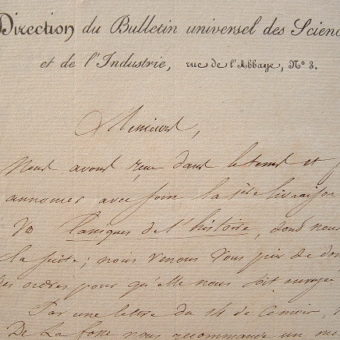 Direction du Bulletin universel des Scien
et de l'Industrie, rue de l'Abbaye, N° 3.
Monsieur,
Nous avons reçu dans le tems et
annoncé avec soin la 1ère livraison
Vo Fastiques de l'histoire, dont nous
la suite; nous venons vous prier de don
des ordres pour qu'elle nous soit envoyé
Par une lettre du 14 de
De La nous recommande un